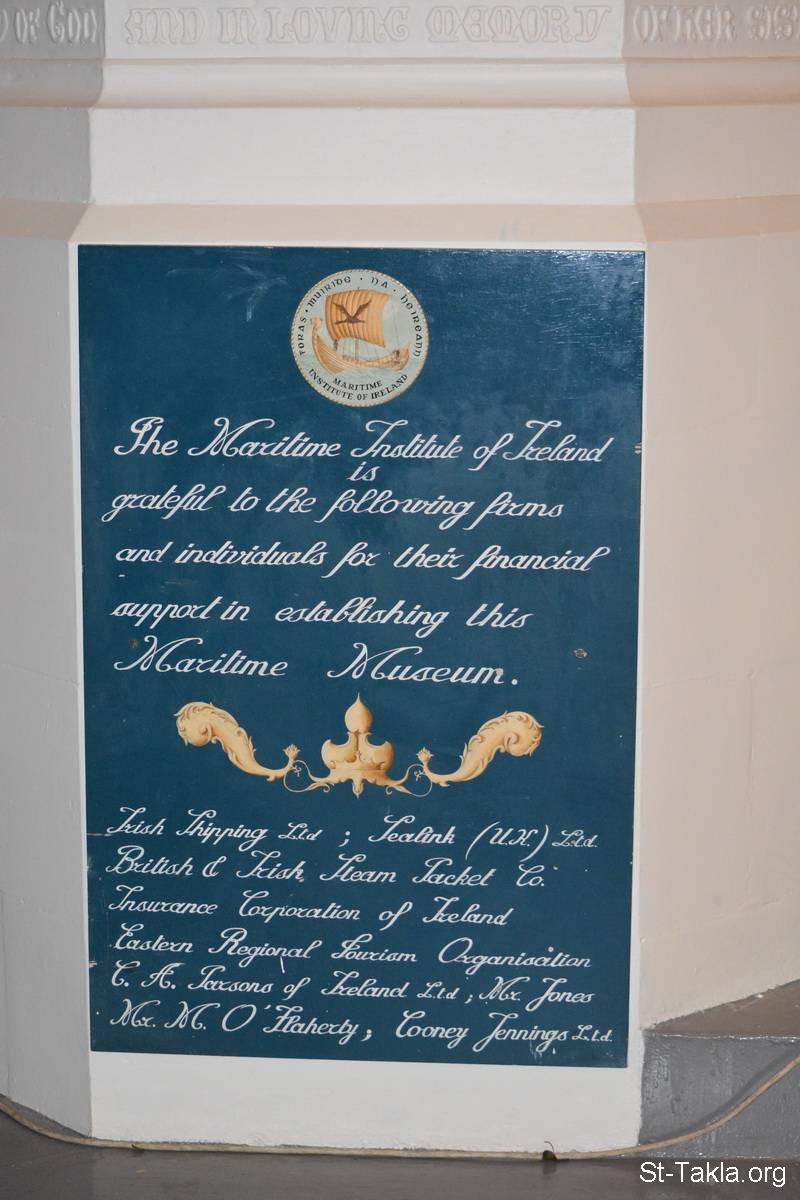 D OF GOD AND IN LOVING MEMORY OF HER SIS
FORAS · MUIRIDE · NA · HEIREANN
MARITIME
INSTITUTE OF IRELAND
The Maritime Institute of Ireland
is
grateful to the following firms
and individuals for their financial
support in establishing this
Maritime Museum.
Irish Shipping Ltd ; Sealink (U.K.) Ltd.
British & Irish Steam Packet Co.
Insurance Corporation of Ireland
Eastern Regional Tourism Organisation
C. A. Parsons of Ireland Ltd ; Mr. Jones
Mr. M. O'Flaherty ; Cooney Jennings Ltd.
St-Takla.org